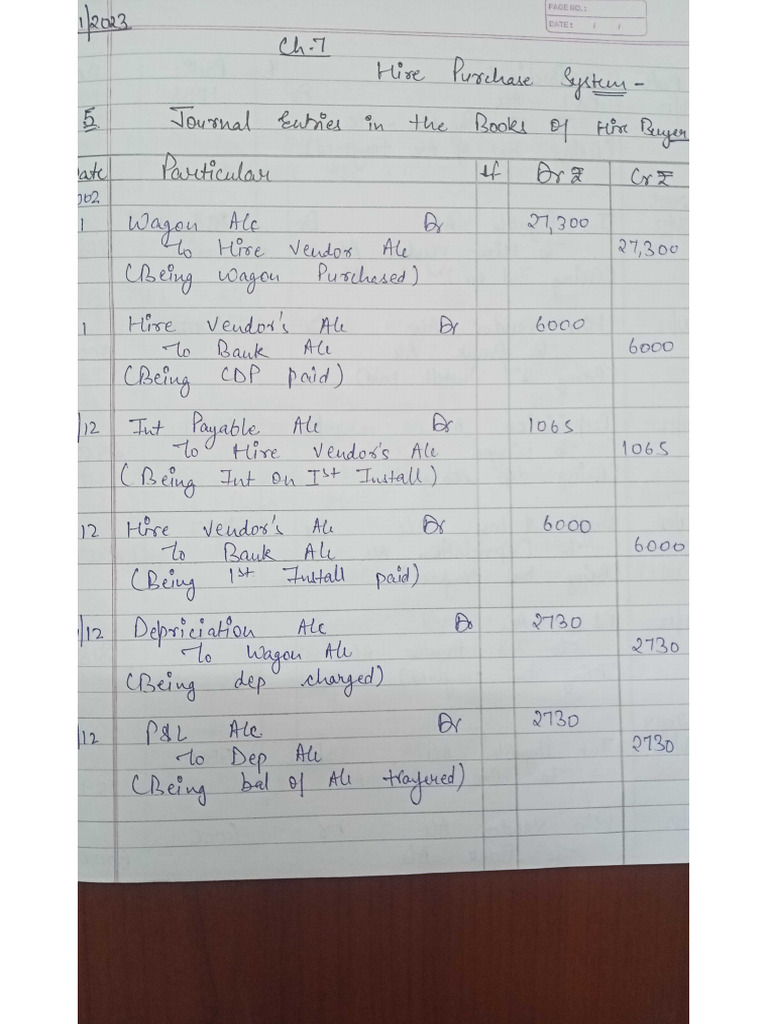 1/2023
PAGE NO.:
DATE: / /
Ch.7
Hire Purchase System -
5. Journal Entries in the Books of Hire Buyer
ate Particular lf Dr ₹ Cr ₹
002
1 Wagon A/c Dr 27,300
To Hire Vendor A/c 27,300
(Being Wagon Purchased)
1 Hire Vendor's A/c Dr 6000
To Bank A/c 6000
(Being CDP paid)
/12 Int Payable A/c Dr 1065
To Hire Vendor's A/c 1065
(Being Int on Ist Install)
12 Hire Vendor's A/c Dr 6000
To Bank A/c 6000
(Being 1st Install paid)
/12 Depriciation A/c Dr 2730
To Wagon A/c 2730
(Being dep charged)
/12 P&L A/c Dr 2730
To Dep A/c 2730
(Being bal of A/c)